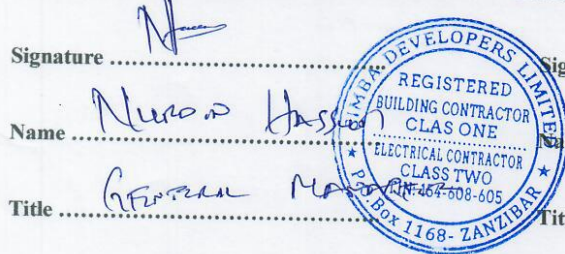 Signature
Sig
Name Hassan
Na
Title General Manager
Tit
IMBA DEVELOPERS LIMITE
REGISTERED
BUILDING CONTRACTOR
CLAS ONE
ELECTRICAL CONTRACTOR
CLASS TWO
464-608-605
P.O.Box 1168- ZANZIBAR